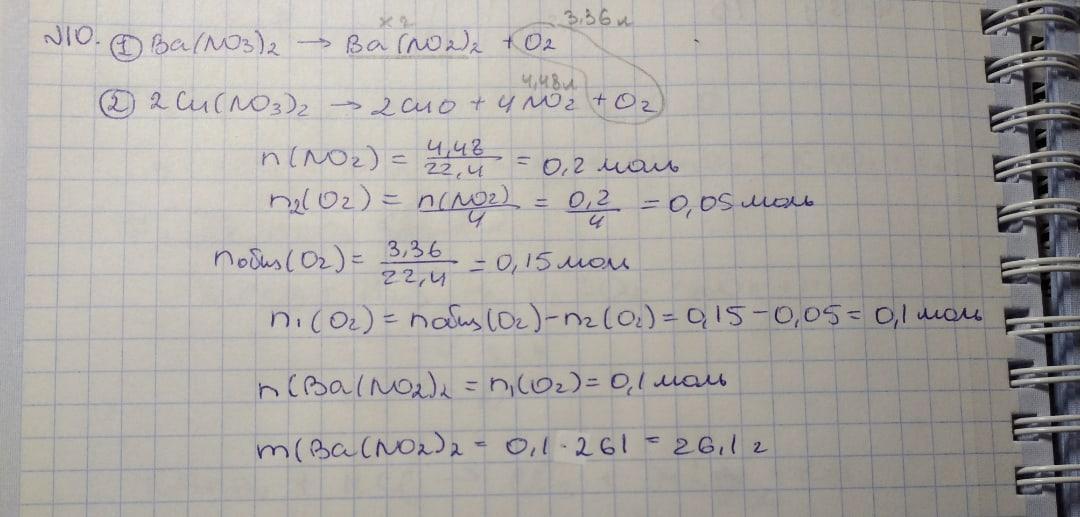 x г 3,36 л
№10. ① Ba(NO3)2 → Ba(NO2)2 + O2
4,48л
② 2Cu(NO3)2 → 2CuO + 4NO2 + O2
n(NO2) = 4,48/22,4 = 0,2 моль
n2(O2) = n(NO2)/4 = 0,2/4 = 0,05 моль
nобщ(O2) = 3,36/22,4 = 0,15 мол
n1(O2) = nобщ(O2) - n2(O2) = 0,15 - 0,05 = 0,1 моль
n(Ba(NO2)2 = n1(O2) = 0,1 моль
m(Ba(NO2)2 = 0,1 · 261 = 26,1 г